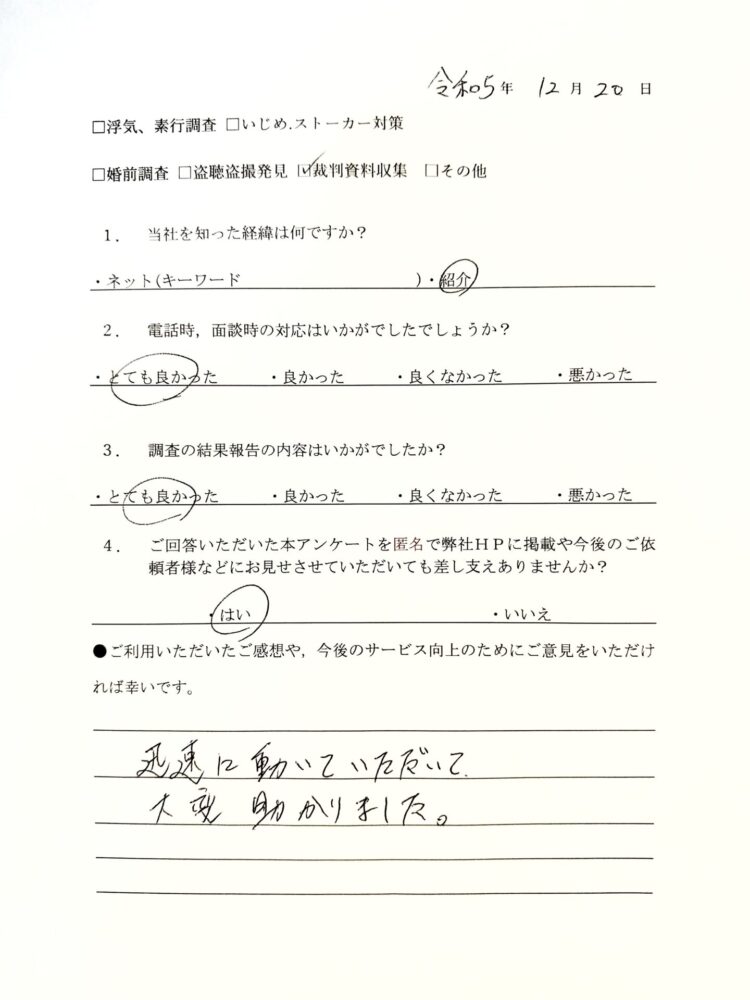 令和5年 12月20日
□浮気、素行調査 □いじめ.ストーカー対策
□婚前調査 □盗聴盗撮発見 ☑裁判資料収集 □その他
1. 当社を知った経緯は何ですか?
・ネット(キーワード )・紹介
2. 電話時,面談時の対応はいかがでしたでしょうか?
・とても良かった ・良かった ・良くなかった ・悪かった
3. 調査の結果報告の内容はいかがでしたか?
・とても良かった ・良かった ・良くなかった ・悪かった
4. ご回答いただいた本アンケートを匿名で弊社HPに掲載や今後のご依
頼者様などにお見せさせていただいても差し支えありませんか?
・はい ・いいえ
●ご利用いただいたご感想や,今後のサービス向上のためにご意見をいただけ
れば幸いです。
迅速に動いていただいて
大変助かりました。